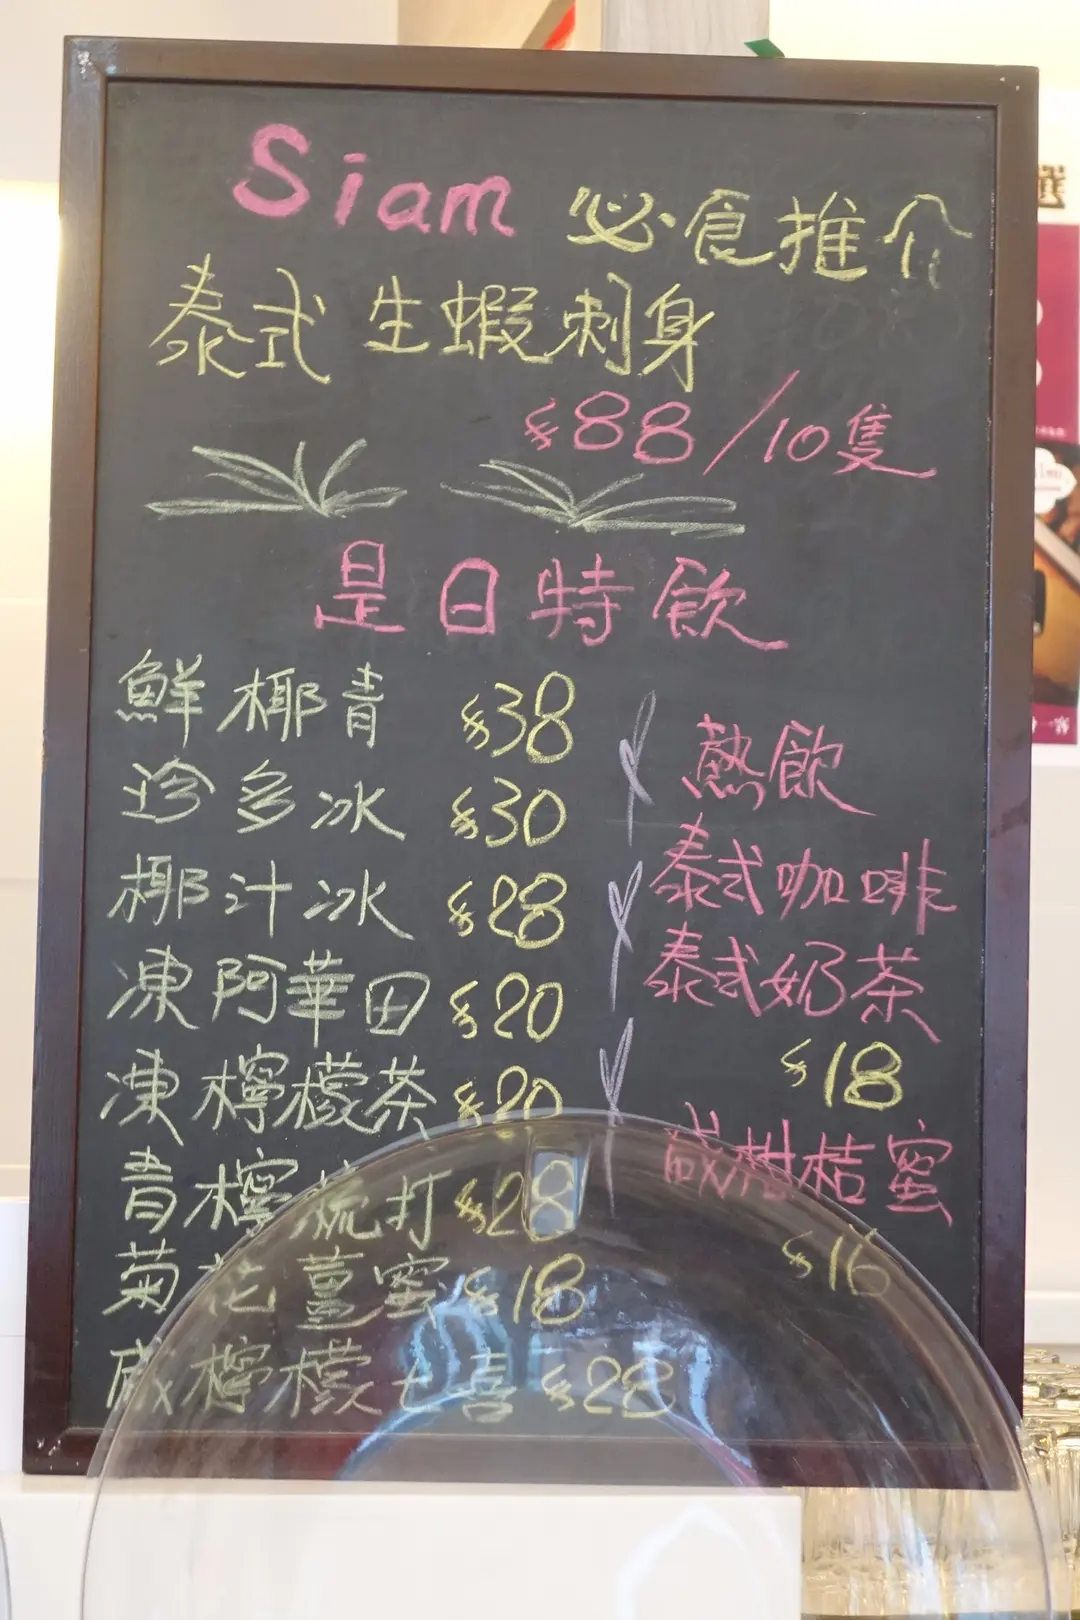 Siam 必食推介
泰式生蝦刺身
$88/10隻
是日特飲
鮮椰青 $38
珍多冰 $30
椰汁冰 $28
凍阿華田 $20
凍檸檬茶 $20
青檸梳打 $28
菊花薑蜜 $18
咸檸檬七喜 $28
熱飲
泰式咖啡
泰式奶茶
$18
咸柑桔蜜
$16
選